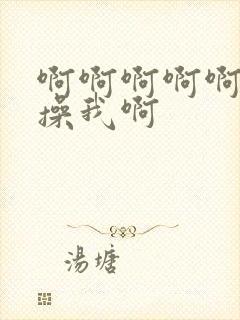 啊啊啊啊啊
操我啊
湯塘